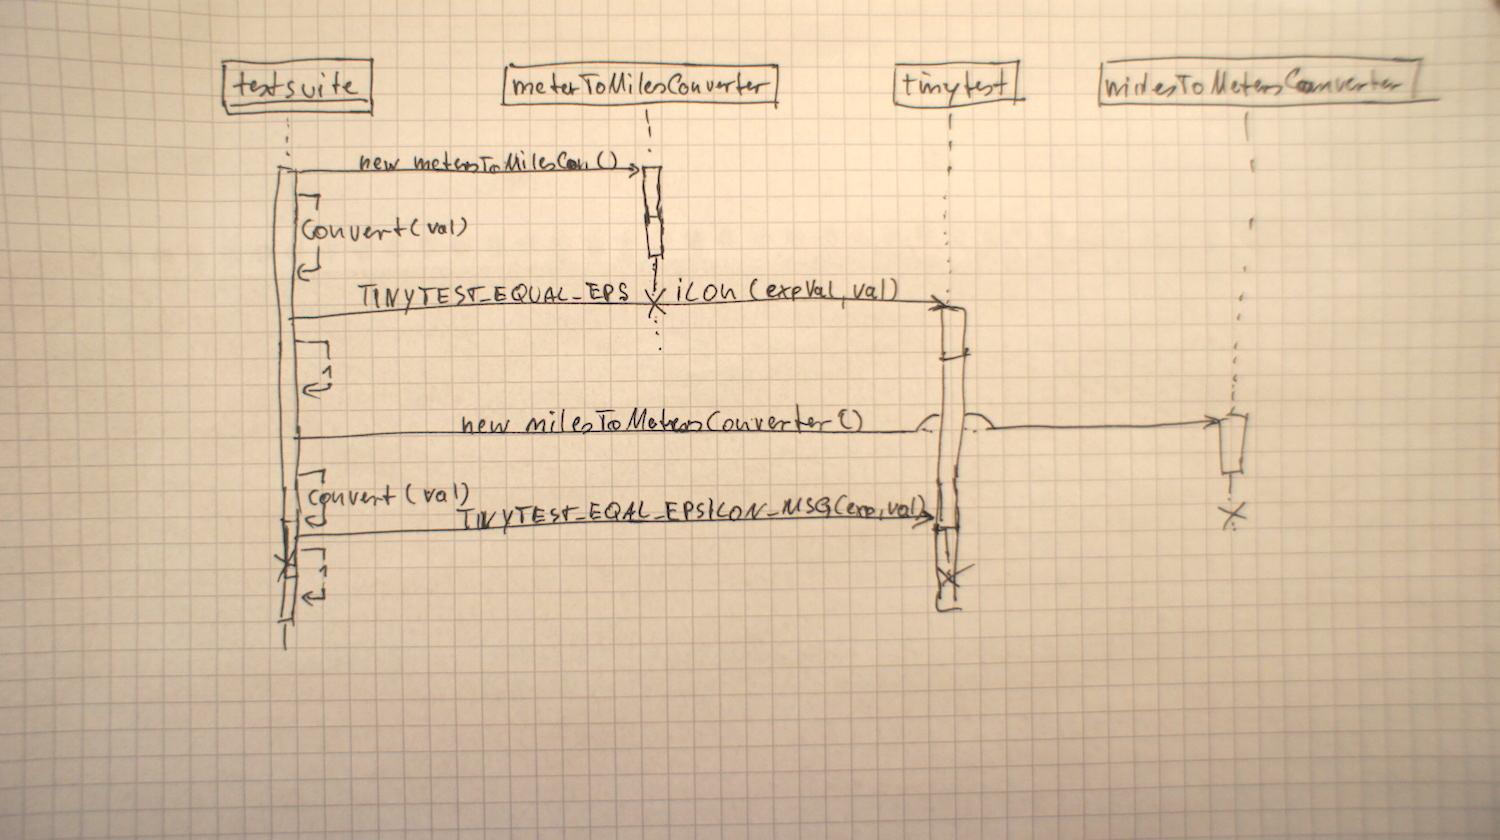 testsuite
meterToMilesConverter
tinytest
milesToMetersConverter
new metersToMilesCon()
Convert(val)
TINYTEST_EQUAL_EPS iLON (expVal, val)
1
new milesToMetersConverter()
Convert(val)
TINYTEST_EQAL_EPSILON_MSG(exp,val)
1